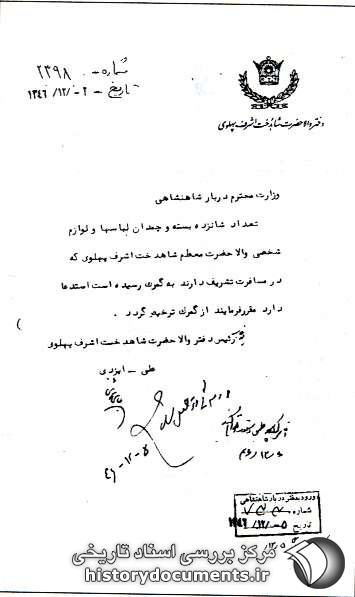 شماره - ۲۳۹۸
تاریخ - ۲ - /۱۲/ ۱۳۴۶
دفتر والاحضرت شاهدخت اشرف پهلوی
وزارت محترم دربار شاهنشاهی
تعداد شانزده بسته و چمدان لباسها و لوازم
شخصی والا حضرت معظم شاهدخت اشرف پهلوی که
در مسافرت تشریف دارند به گمرک رسیده است استدعا
دارد مقرر فرمایند از گمرک ترخیص گردد .
رئیس دفتر والا حضرت شاهدخت اشرف پهلوی
علی - ایزدی
ورود به دفتر دربار شاهنشاهی
شماره
تاریخ ۵ /۱۲/ ۱۳۴۶
مرکز بررسی اسناد تاریخی
historydocuments.ir